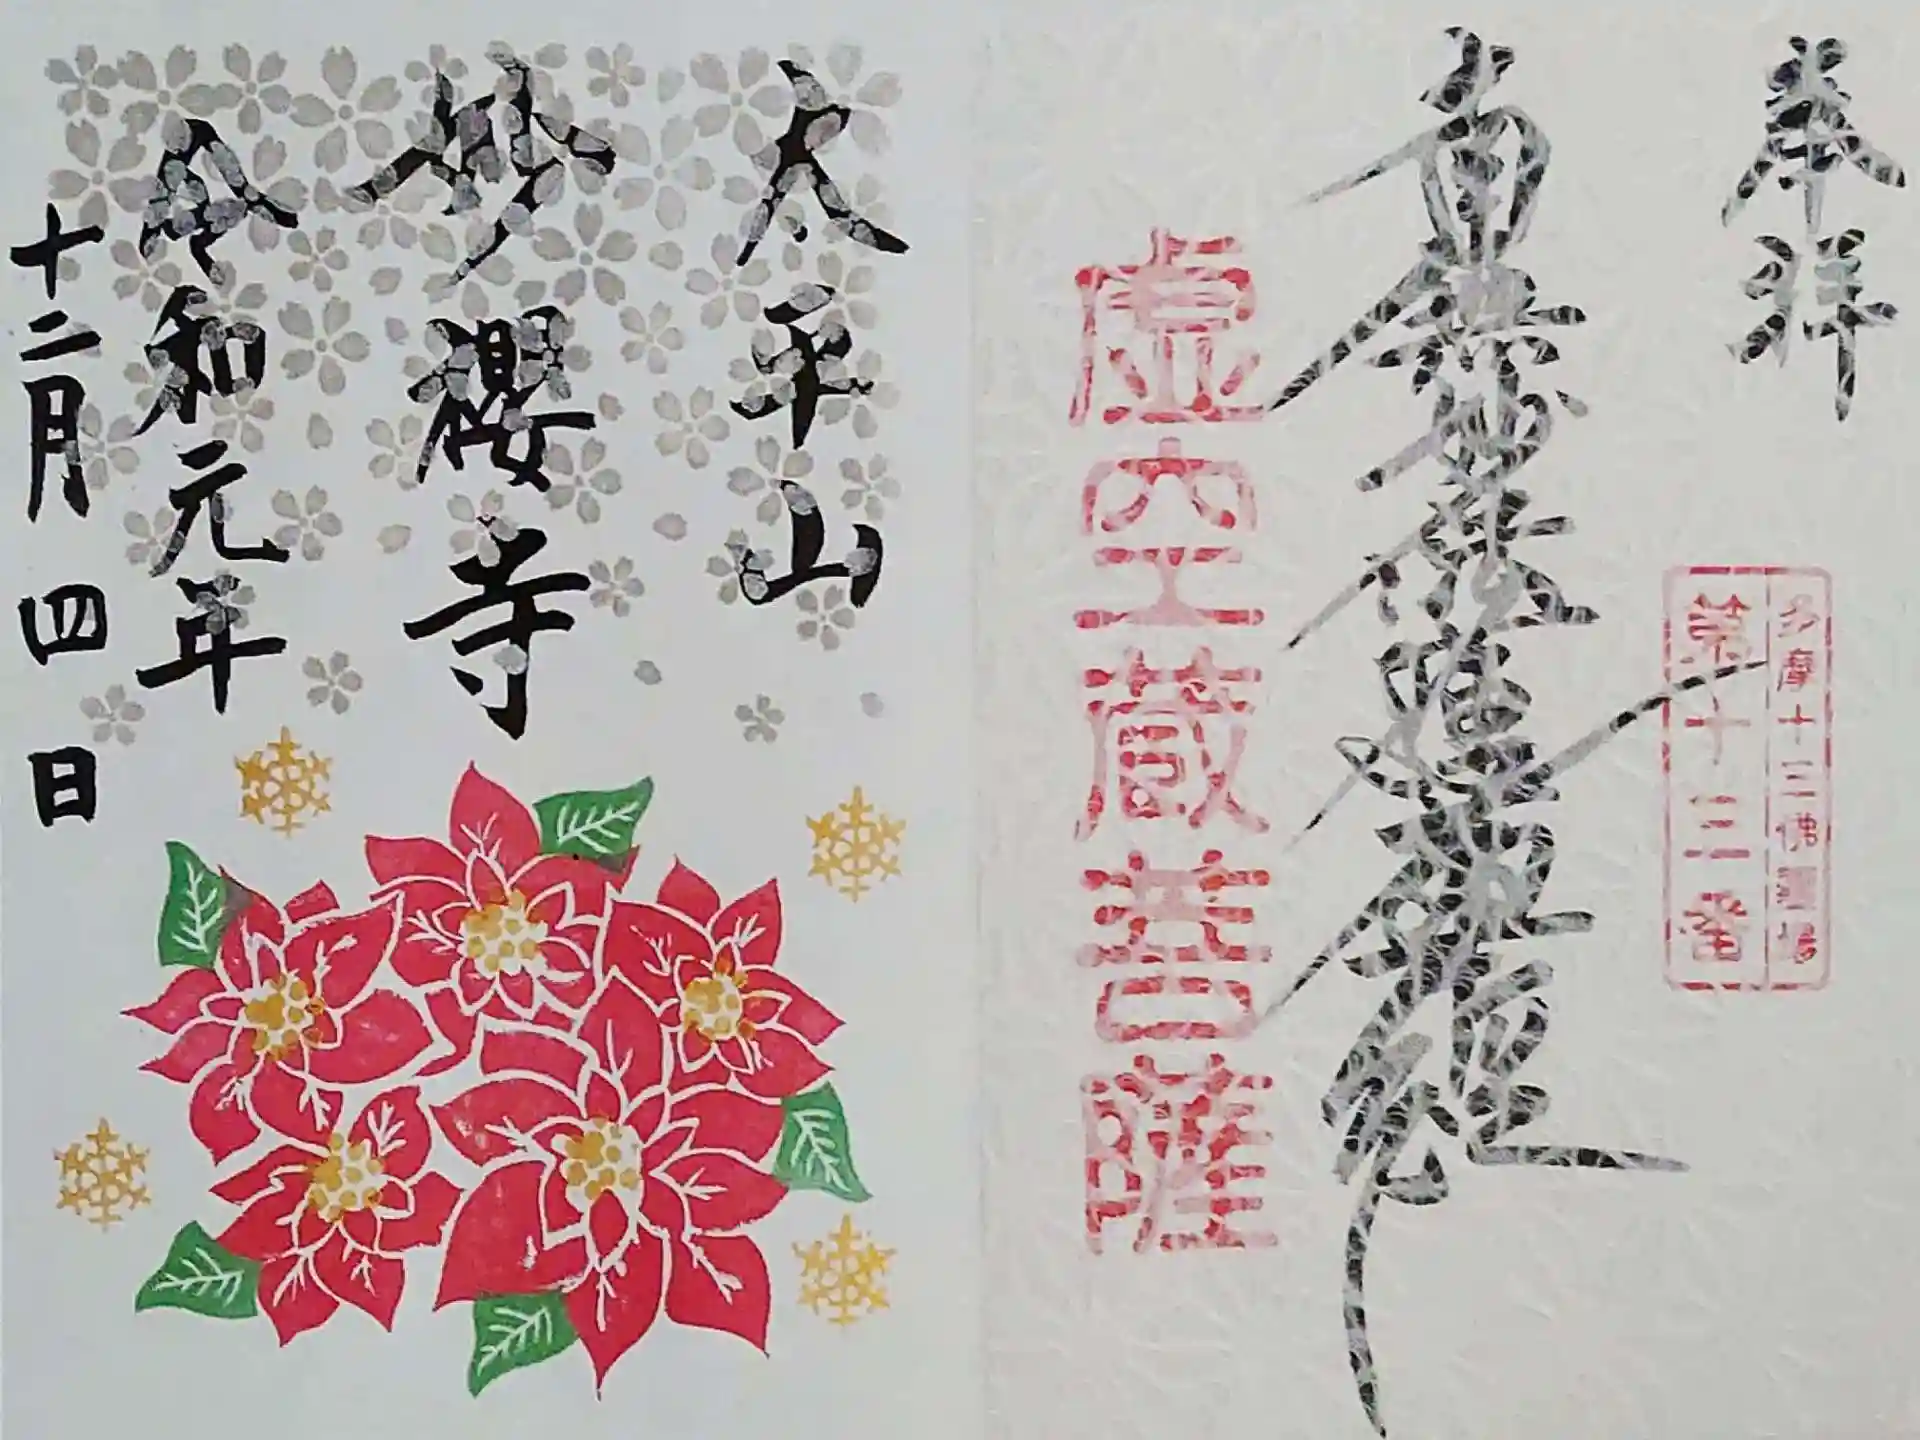 奉拝
南無妙法蓮華経
多摩十三佛霊場
第十三番
虚空蔵菩薩
太平山
妙櫻寺
令和元年
十二月四日